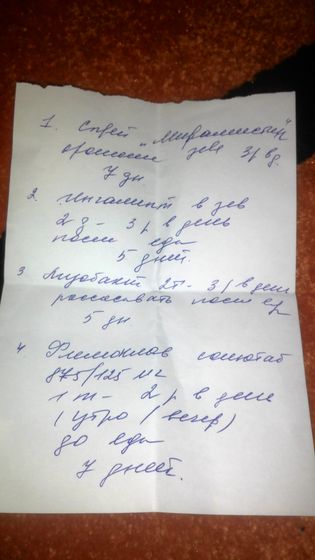 1. Спрей „Мирамистин"
орошение зева 3 р в д.
7 дн.
2. Ингалипт в зев
2 д - 3 р в день
после еды
5 дней.
3 Лизобакт 2т - 3 р в день
рассасывать после еды
5 дн
4. Флемоклав солютаб
875/125 мг
1 т - 2 р в день
(утро / вечер)
до еды
7 дней.